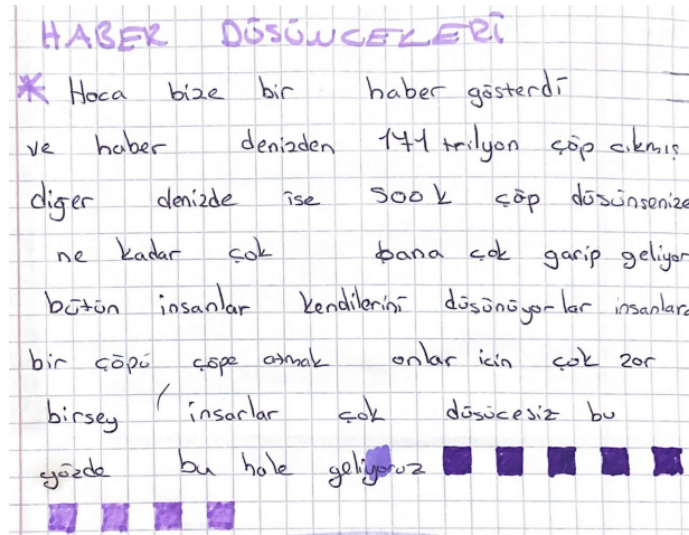 HABER DÜSÜNCELERİ
* Hoca bize bir haber gösterdi
ve haber denizden 171 trilyon çöp cıkmış
diger denizde ise 500k çöp düsünsenize
ne kadar çok bana çok garip geliyor
bütün insanlar kendilerini düsünüyorlar insanlara
bir çöpü çöpe atmak onlar icin çok zor
birsey insanlar çok düsücesiz bu
yüzde bu hale geliyoruz